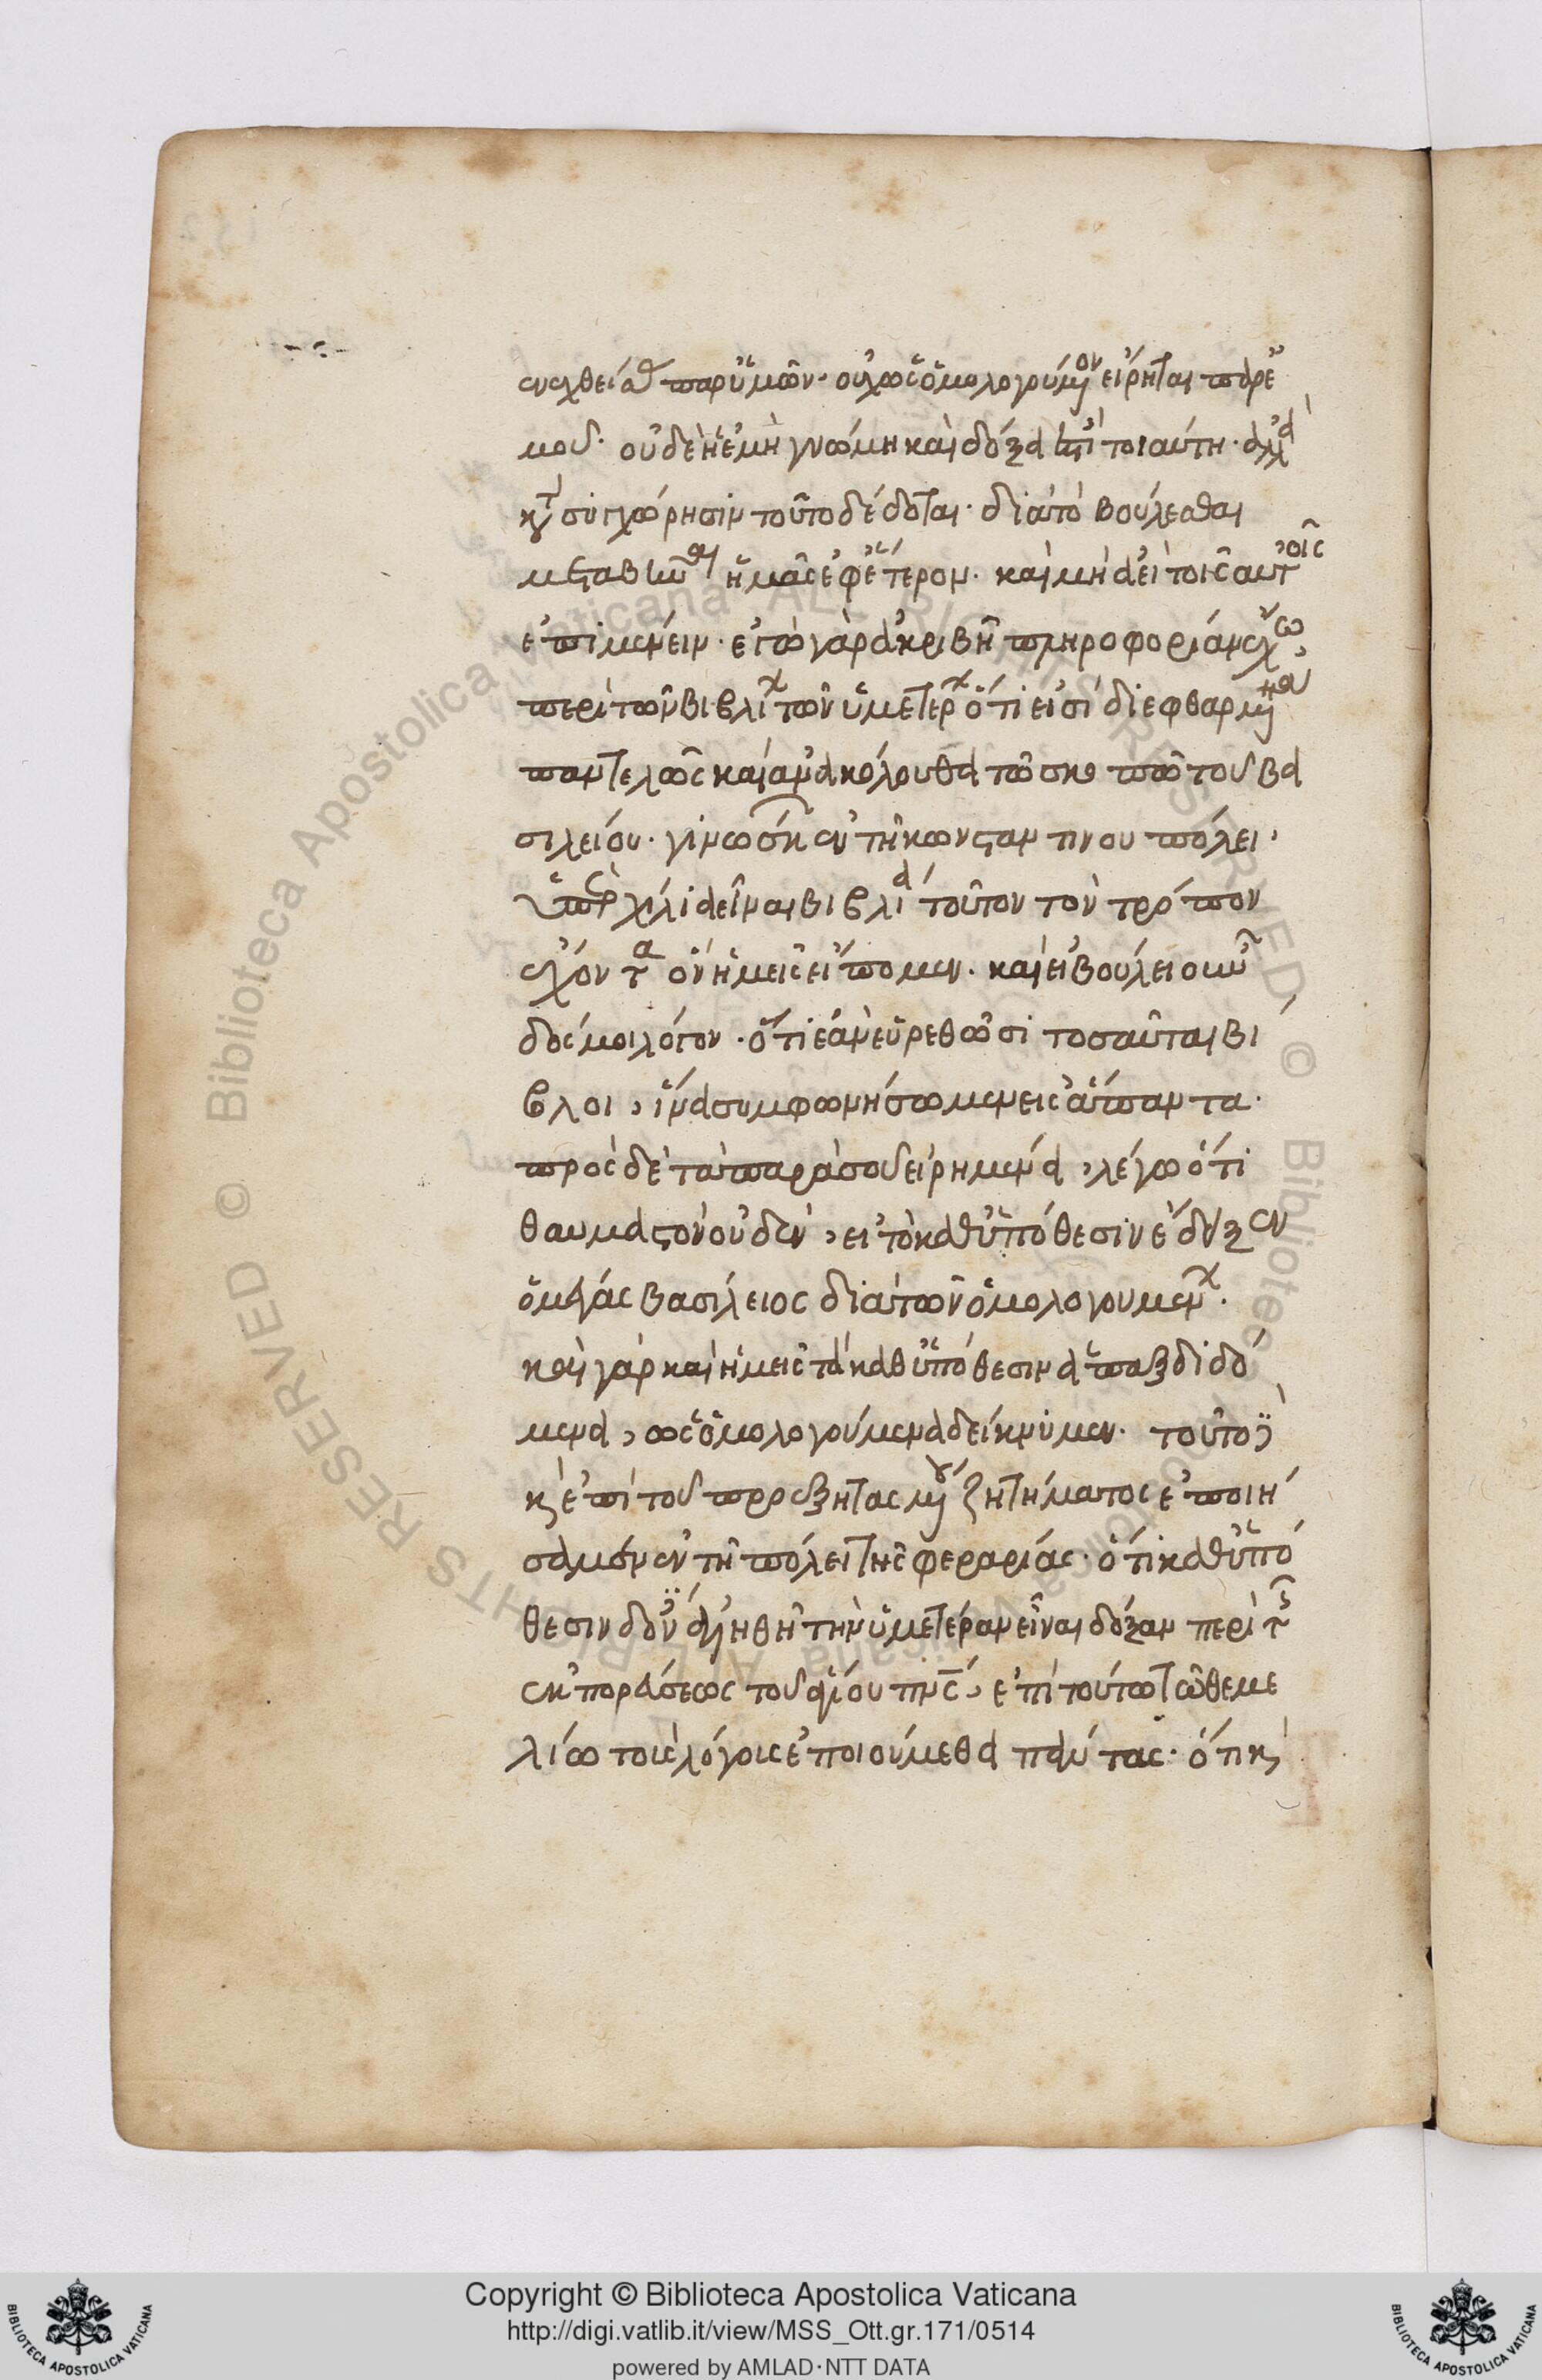 ενεχθεῖσα παρ' ὑμῶν· οὐχ ὡς ὁμολογούμενον εἴρηται παρ' ἐ
μοῦ· οὐδὲ ἡ ἐμὴ γνώμη καὶ δόξα ἐστὶ τοιαύτη· ἀλλὰ
κατὰ συγχώρησιν τοῦτο δέδοται· διὰ τὸ βούλεσθαι
μεταβιῶναι ἡμᾶς ἐφ' ἕτερον· καὶ μὴ ἀεὶ τοῖς αὐτοῖς
ἐπιμένειν· ἐγὼ γὰρ ἀκριβῆ πληροφορίαν ἔχω,
περὶ τῶν βιβλίων τῶν ὑμετέρων ὅτι εἰσὶ διεφθαρμένα
παντελῶς καὶ ἀνακόλουθα τῷ σκοπῷ τοῦ βα
σιλείου· γινώσκω ἐν τῇ κωνσταντινουπόλει,
ὑπὲρ χίλια εἶναι βιβλία τοῦτον τὸν τρόπον
ἔχοντα ὃν ἡμεῖς εἴπομεν· καὶ εἰ βούλει
δός μοι λόγον· ὅτι ἐὰν εὑρεθῶσι τοσαῦται βί
βλοι, ἵνα συμφωνήσωμεν εἰς ἅπαντα·
πρὸς δὲ τὰ παρὰ σοῦ εἰρημένα, λέγω ὅτι
θαυμαστὸν οὐδέν, εἰ τὸ καθ' ὑπόθεσιν ἔδειξεν
ὁ μέγας βασίλειος διὰ τῶν ὁμολογουμένων·
καὶ γὰρ καὶ ἡμεῖς τὰ καθ' ὑπόθεσιν ἅπαξ διδό
μενα, ὡς ὁμολογούμενα δείκνυμεν· τοῦτο
καὶ ἐπὶ τοῦ προεξητασμένου ζητήματος ἐποιή
σαμεν ἐν τῇ πόλει τῆς φεραρίας· ὅτι καθ' ὑπό
θεσιν δόντες ἀληθῆ τὴν ὑμετέραν εἶναι δόξαν περὶ τῆς
ἐκπορεύσεως τοῦ ἁγίου πνς, ἐπὶ τούτῳ τῷ θεμε
λίῳ τοὺς λόγους ἐποιούμεθα πάντας· ὅτι καὶ
Copyright © Biblioteca Apostolica Vaticana
http://digi.vatlib.it/view/MSS_Ott.gr.171/0514
powered by AMLAD·NTT DATA